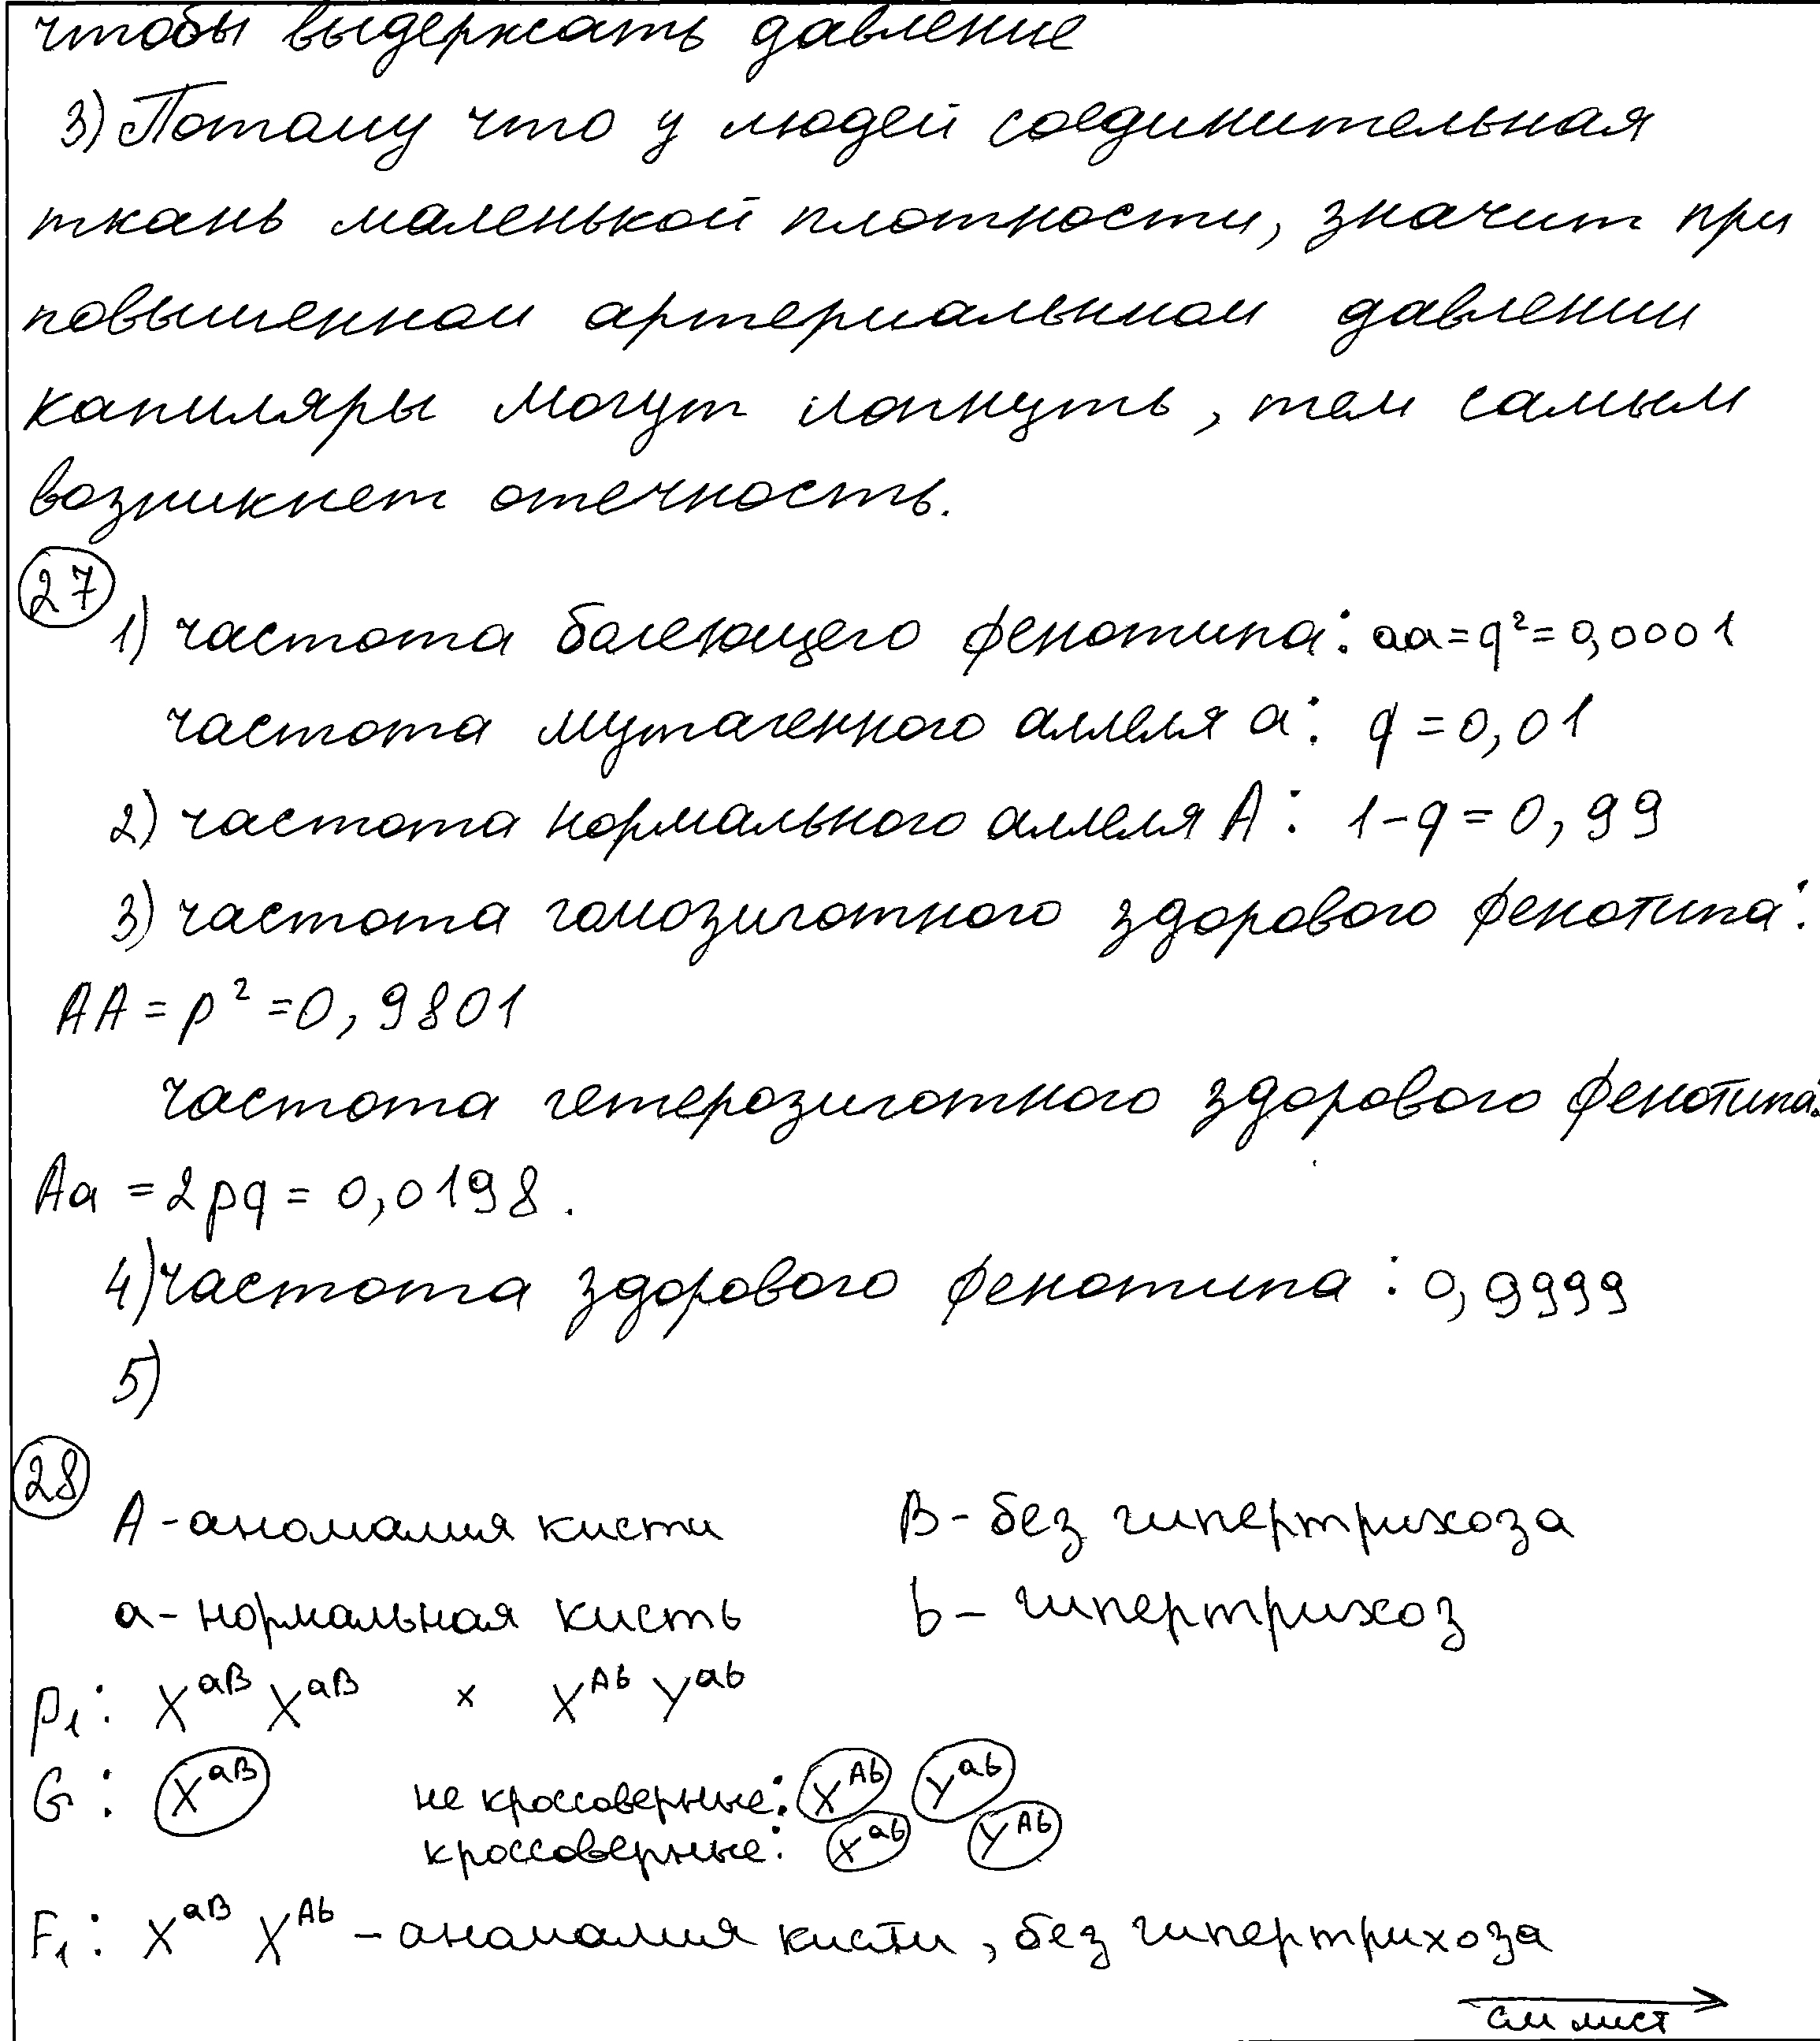 чтобы выдержать давление
3) Потому что у людей соединительная
ткань маленькой плотности, значит при
повышенном артериальном давлении
капиляры могут лопнуть, тем самым
возникнет отечность.
27
1) частота болеющего фенотипа: aa=q²=0,0001
частота мутагенного аллеля a: q=0,01
2) частота нормального аллеля A: 1-q=0,99
3) частота гомозиготного здорового фенотипа:
AA=p²=0,9801
частота гетерозиготного здорового фенотипа:
Aa=2pq=0,0198.
4) частота здорового фенотипа: 0,9999
5)
28
A - аномалия кисти B - без гипертрихоза
a - нормальная кисть b - гипертрихоз
P₁: Xᵃᴮ Xᵃᴮ × Xᴬᵇ Yᵃᵇ
G: Xᵃᴮ не кроссоверные: Xᴬᵇ Yᵃᵇ
кроссоверные: Xᵃᵇ Yᴬᵇ
F₁: Xᵃᴮ Xᴬᵇ - аномалия кисти, без гипертрихоза
см лист